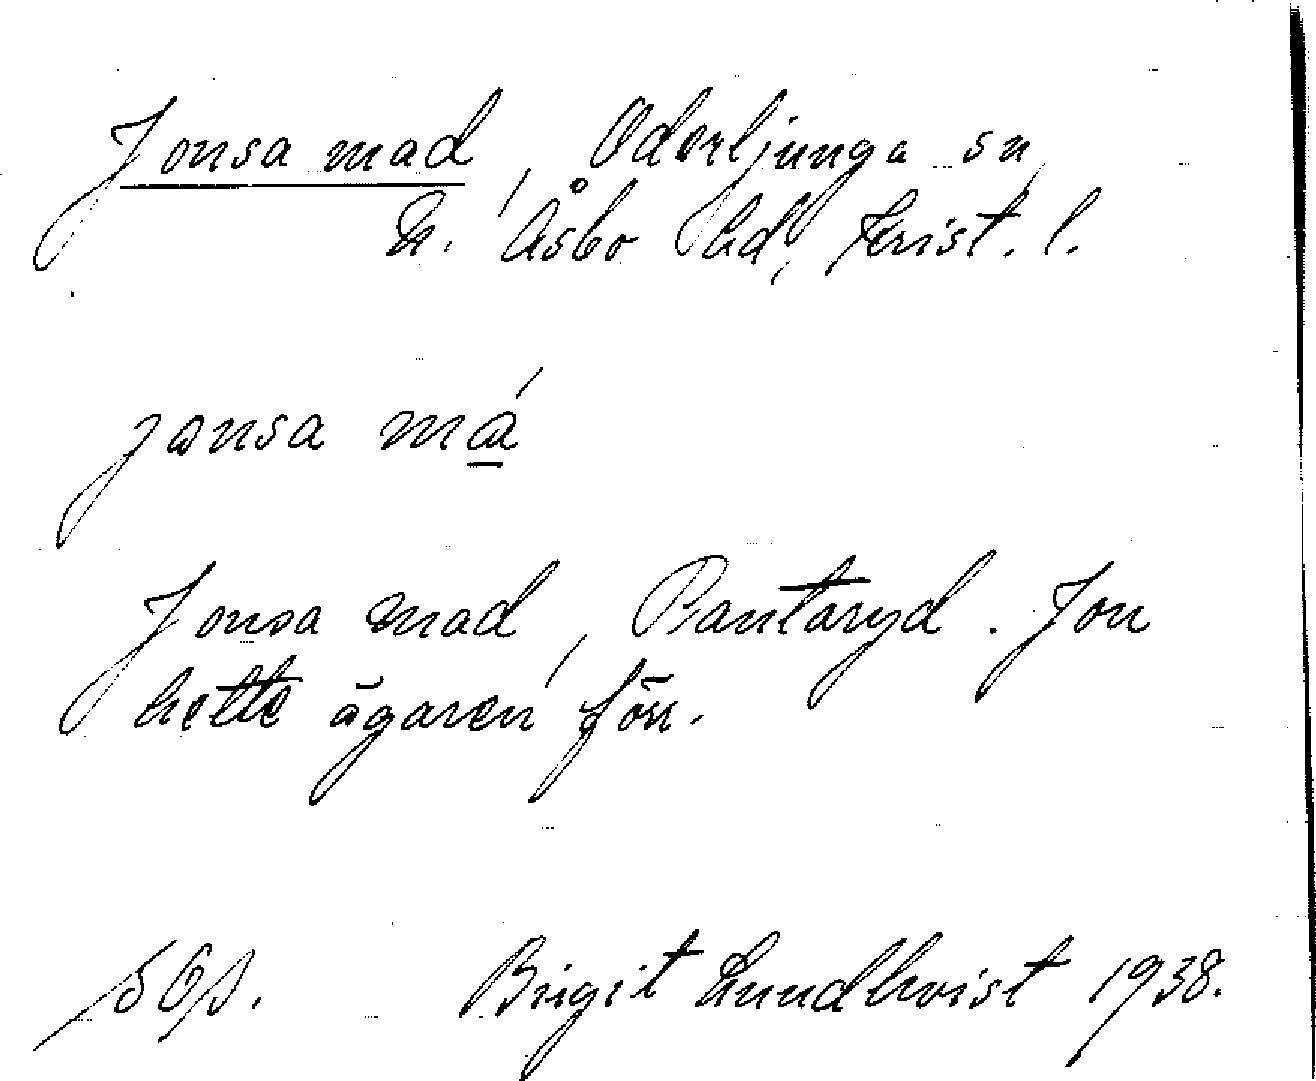 Jonsa mad, Oderljunga sn,
N. Åsbo hd, Krist. l.
jansa má
Jonsa mad, Pantaryd. Jon
hette ägaren förr.
Birgit Lundkvist 1938.